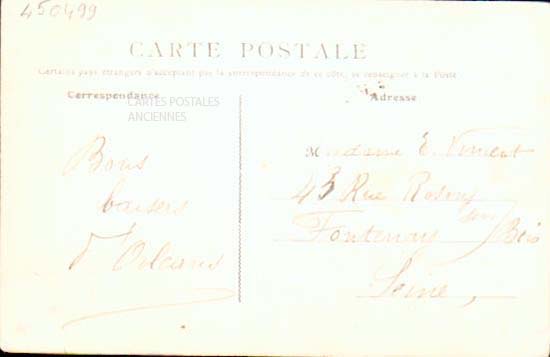 450499
CARTE POSTALE
Certains pays étrangers n'acceptant pas la correspondance de ce côté, se renseigner à la Poste
Correspondance
Adresse
CARTES POSTALES
ANCIENNES
Bons
baisers
d'Orléans
Madame E. Vincent
43 Rue Rosny
Fontenay sous Bois
Seine,